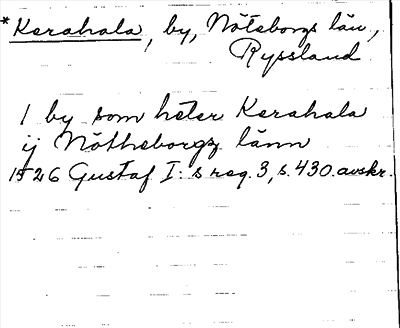 *Kerahala, by, Nöteborgs län,
Ryssland
I by som heter Kerahala
ij Nötheborgz länn
1526 Gustaf I:s reg. 3, s. 430. avskr.